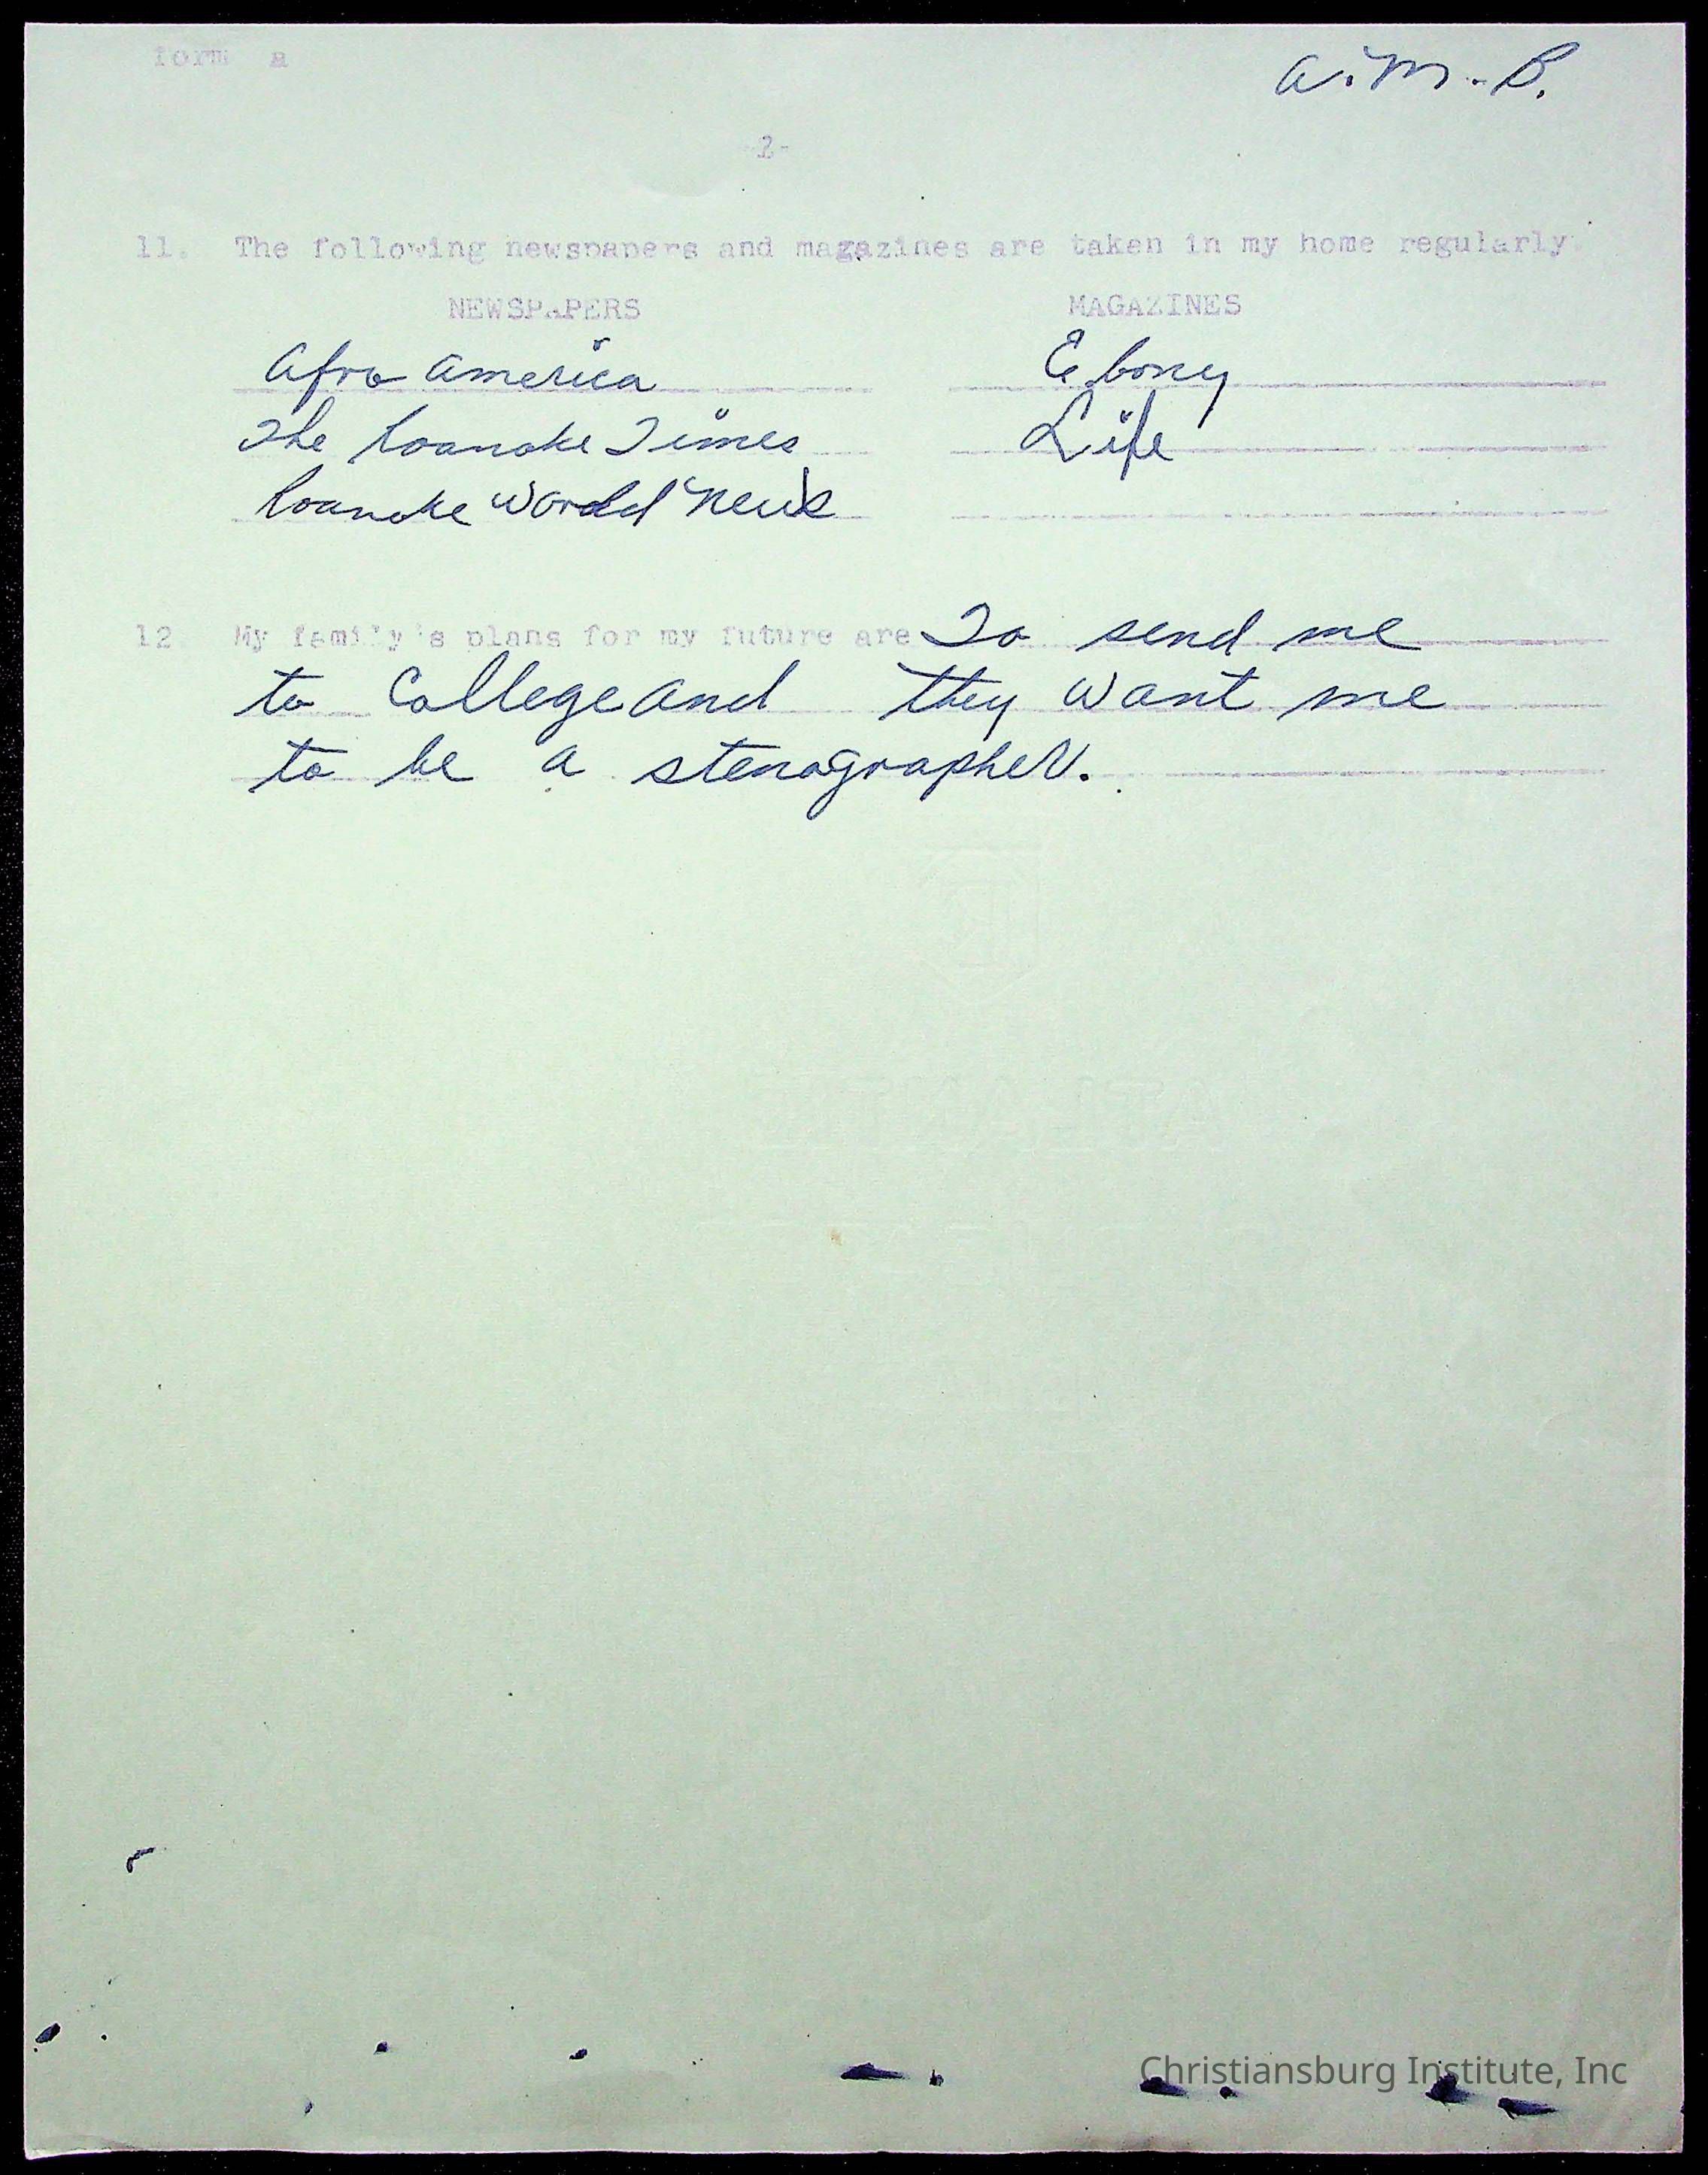 form a
a.M.-B.
-2-
11. The following newspapers and magazines are taken in my home regularly.
NEWSPAPERS MAGAZINES
Afro america Ebony
The Roanoke Times Life
Roanoke World News
12. My family's plans for my future are To send me
to College and they want me
to be a stenographer.
Christiansburg Institute, Inc